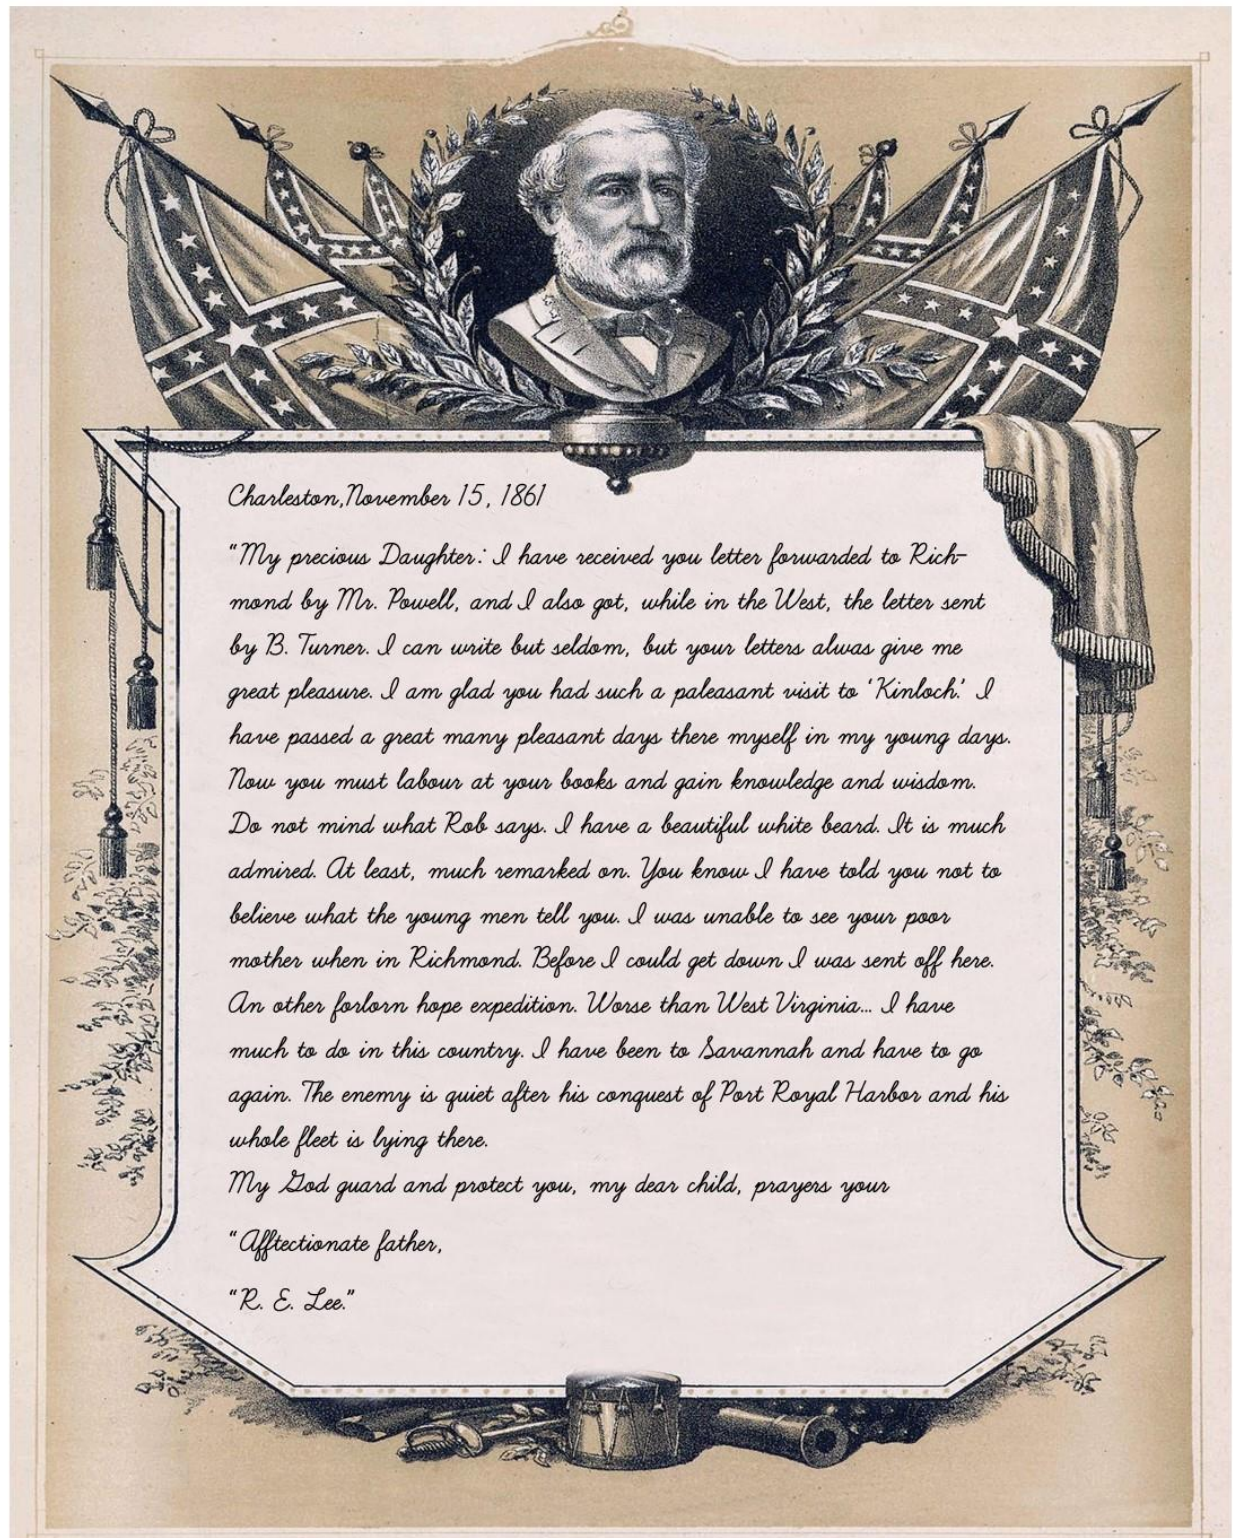 Charleston,November 15, 1861
"My precious Daughter: I have received you letter forwarded to Rich-
mond by Mr. Powell, and I also got, while in the West, the letter sent
by B. Turner. I can write but seldom, but your letters alwas give me
great pleasure. I am glad you had such a paleasant visit to 'Kinloch.' I
have passed a great many pleasant days there myself in my young days.
Now you must labour at your books and gain knowledge and wisdom.
Do not mind what Rob says. I have a beautiful white beard. It is much
admired. At least, much remarked on. You know I have told you not to
believe what the young men tell you. I was unable to see your poor
mother when in Richmond. Before I could get down I was sent off here.
An other forlorn hope expedition. Worse than West Virginia... I have
much to do in this country. I have been to Savannah and have to go
again. The enemy is quiet after his conquest of Port Royal Harbor and his
whole fleet is lying there.
My God guard and protect you, my dear child, prayers your
"Afftectionate father,
"R. E. Lee."